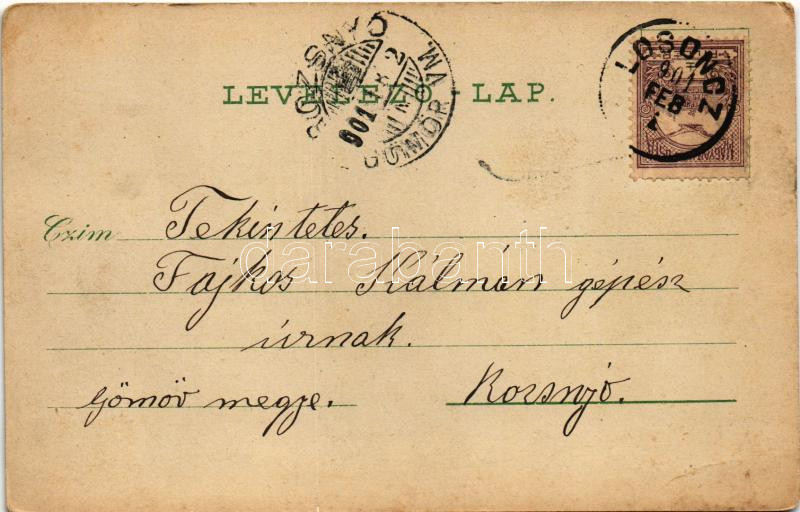 LEVELEZŐ - LAP.
ROZSNYÓ
901 FEB 2
GÖMÖR VM.
LOSONCZ
901
FEB
Czim Tekintetes.
Fajkos Kálmán gépész
úrnak.
Gömör megye. Rozsnyó.
darabanth